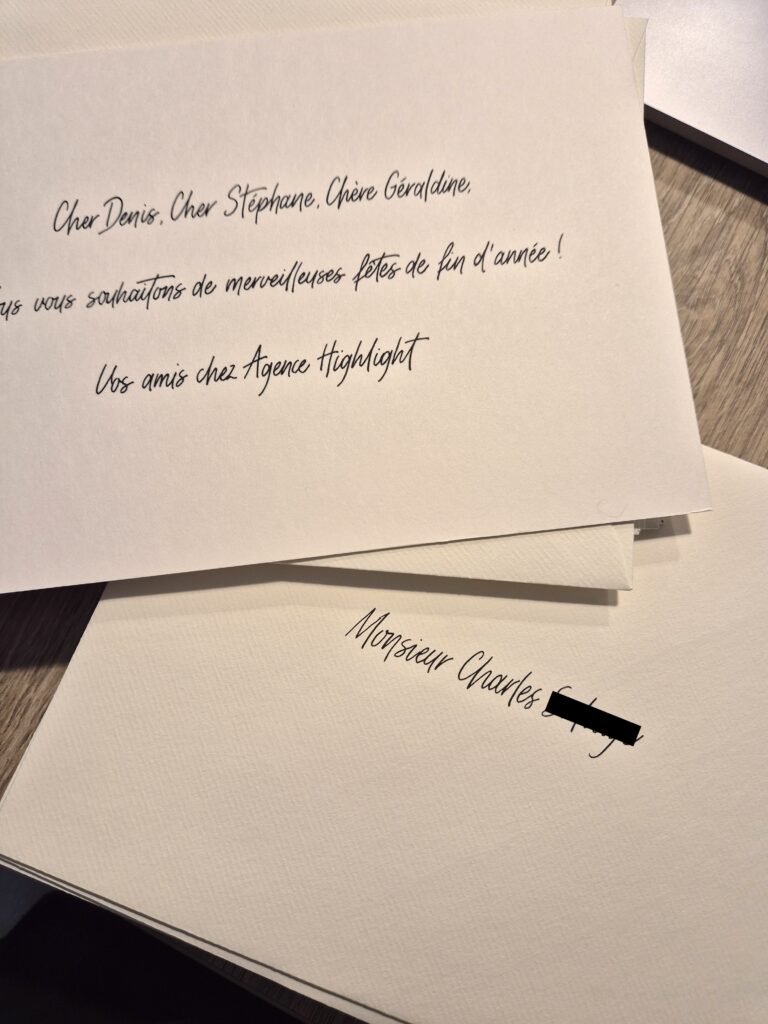 Cher Denis, Cher Stéphane, Chère Géraldine,
vous souhaitons de merveilleuses fêtes de fin d'année !
Vos amis chez Agence Highlight
Monsieur Charles